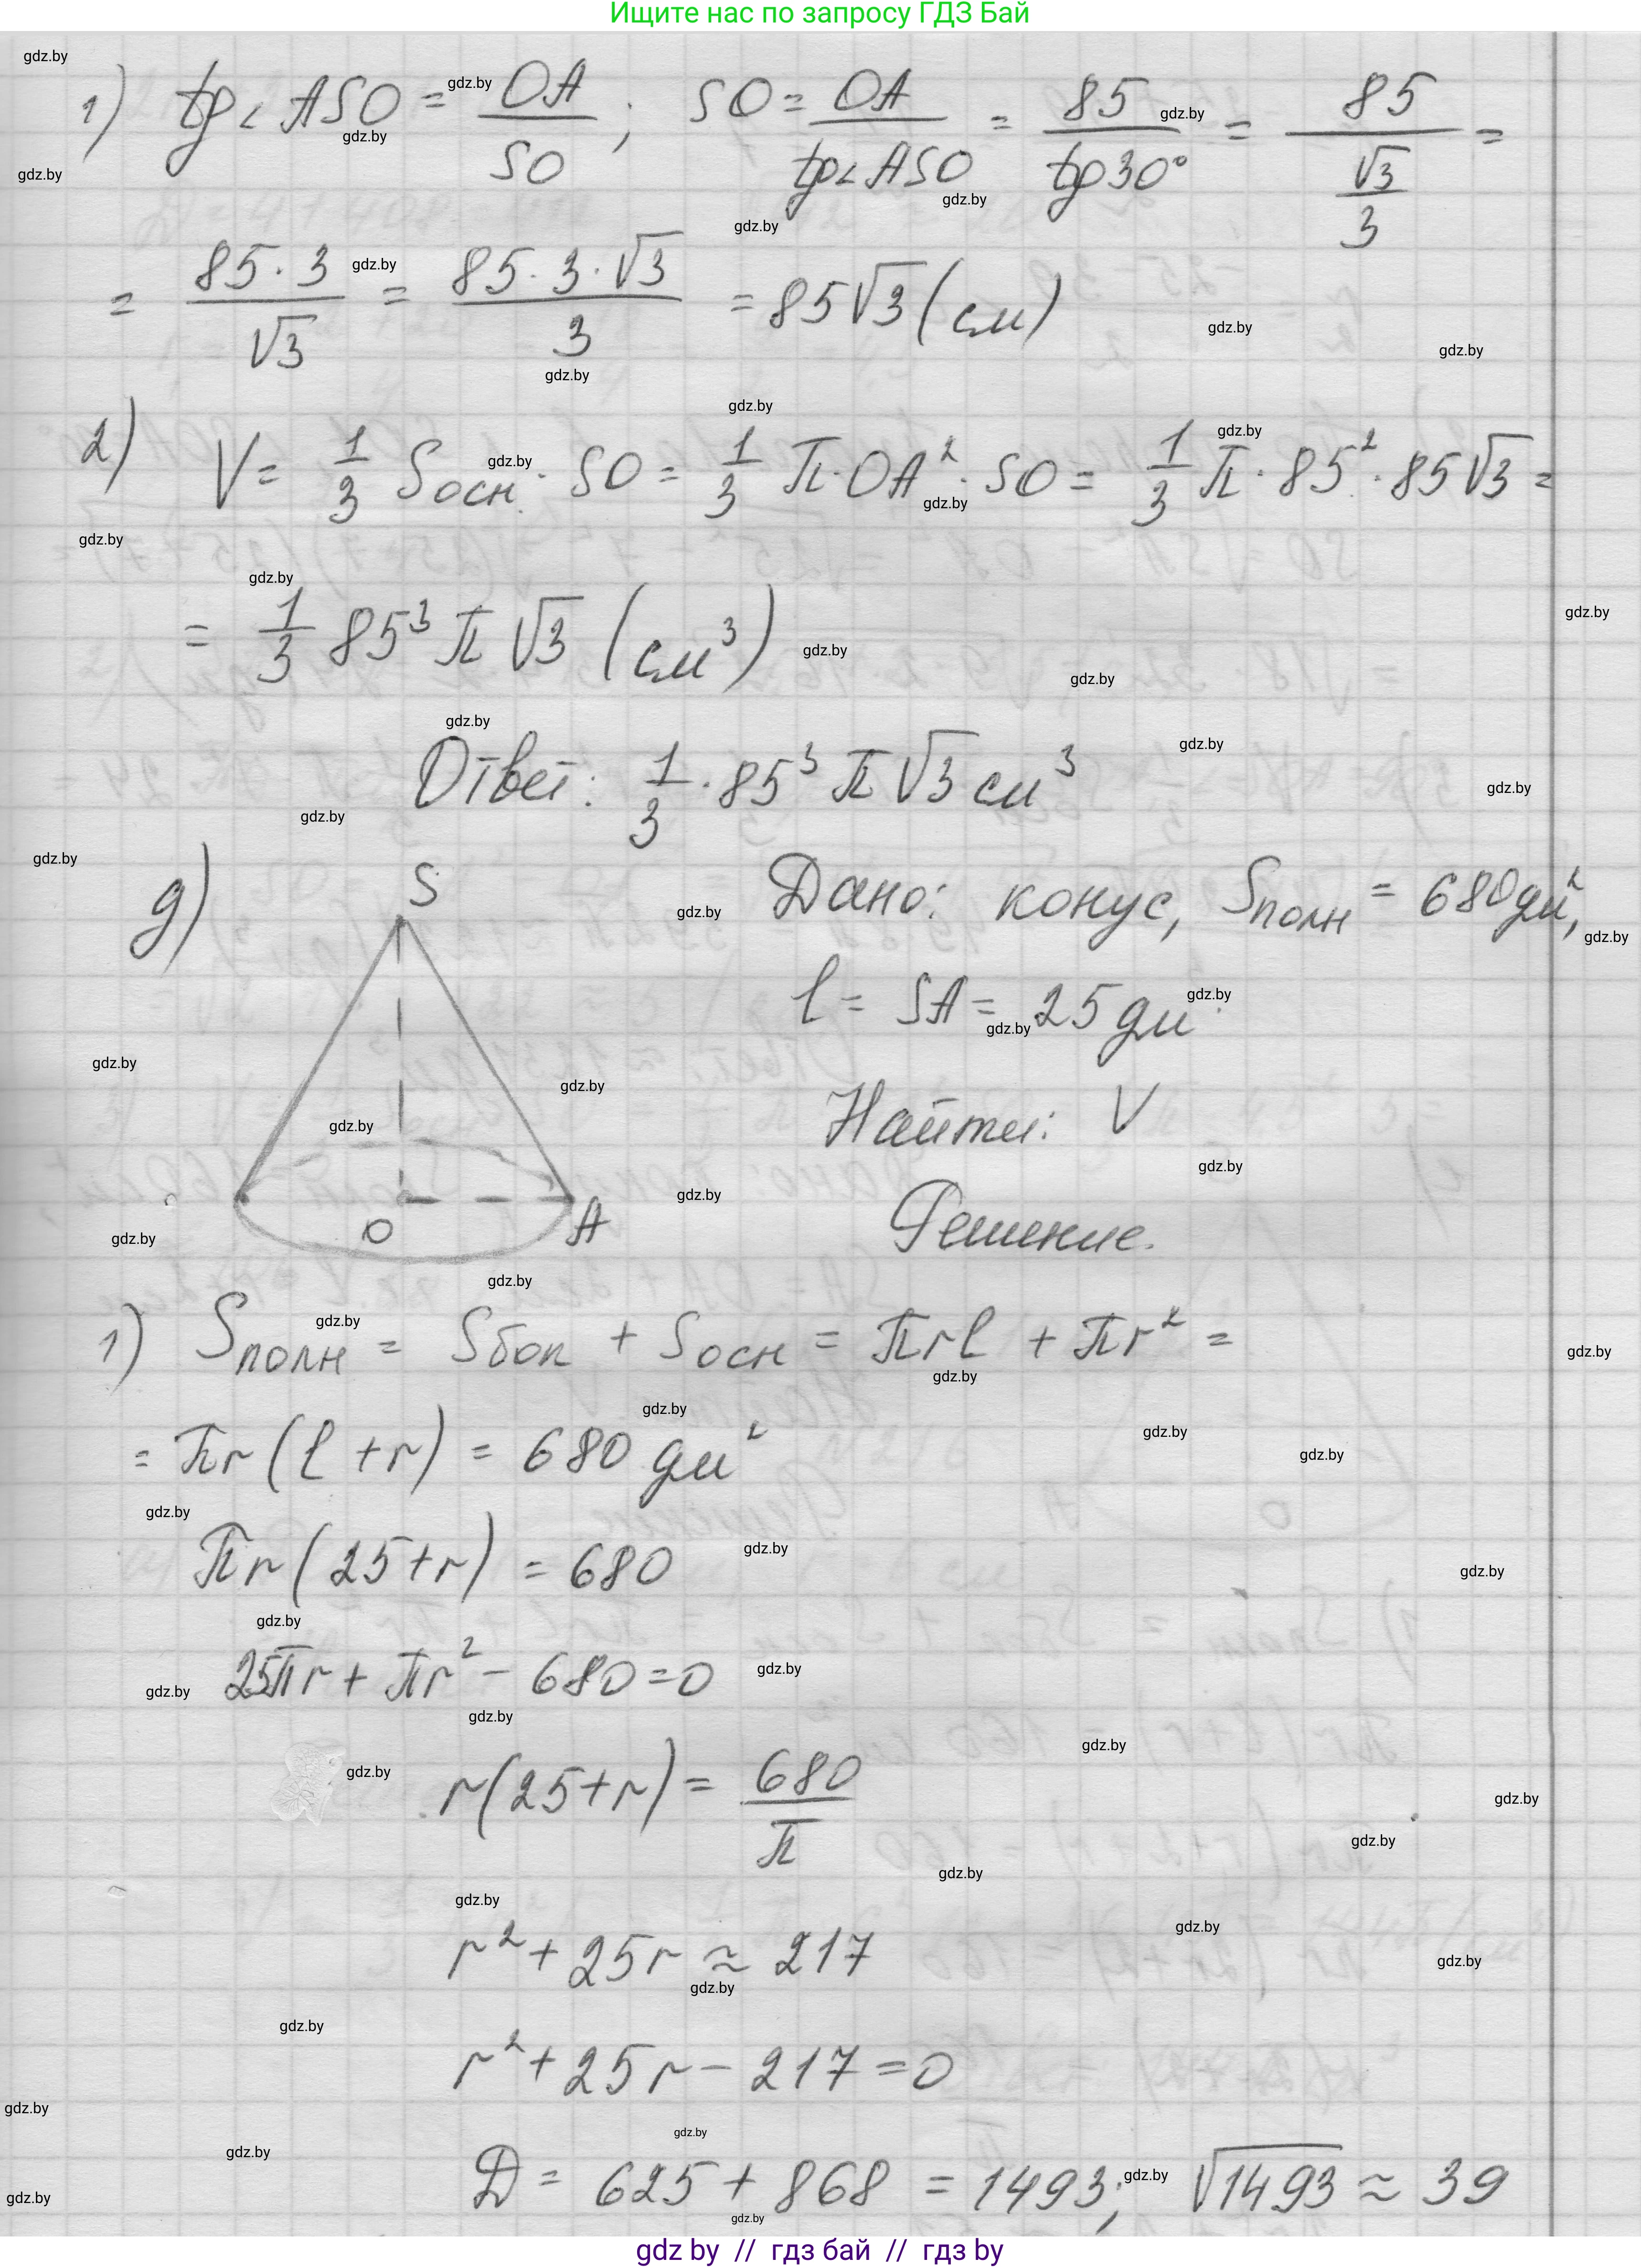 Ищите нас по запросу ГДЗ Бай
1) tg∠ASO = OA/SO; SO = OA/tg∠ASO = 85/tg30° = 85/(√3/3) =
= 85·3/√3 = 85·3·√3/3 = 85√3 (см)
2) V = 1/3 Sосн · SO = 1/3 π·OA²·SO = 1/3 π·85²·85√3 =
= 1/3 85³ π √3 (см³)
Ответ: 1/3 · 85³ π √3 см³
д) Дано: конус, Sполн = 680 дм²,
l = SA = 25 дм
Найти: V
S
O
A
Решение.
1) Sполн = Sбок + Sосн = πrl + πr² =
= πr(l + r) = 680 дм²
πr(25+r) = 680
25πr + πr² − 680 = 0
r(25+r) = 680/π
r² + 25r ≈ 217
r² + 25r − 217 = 0
D = 625 + 868 = 1493; √1493 ≈ 39
gdz by // гдз бай // гдз by